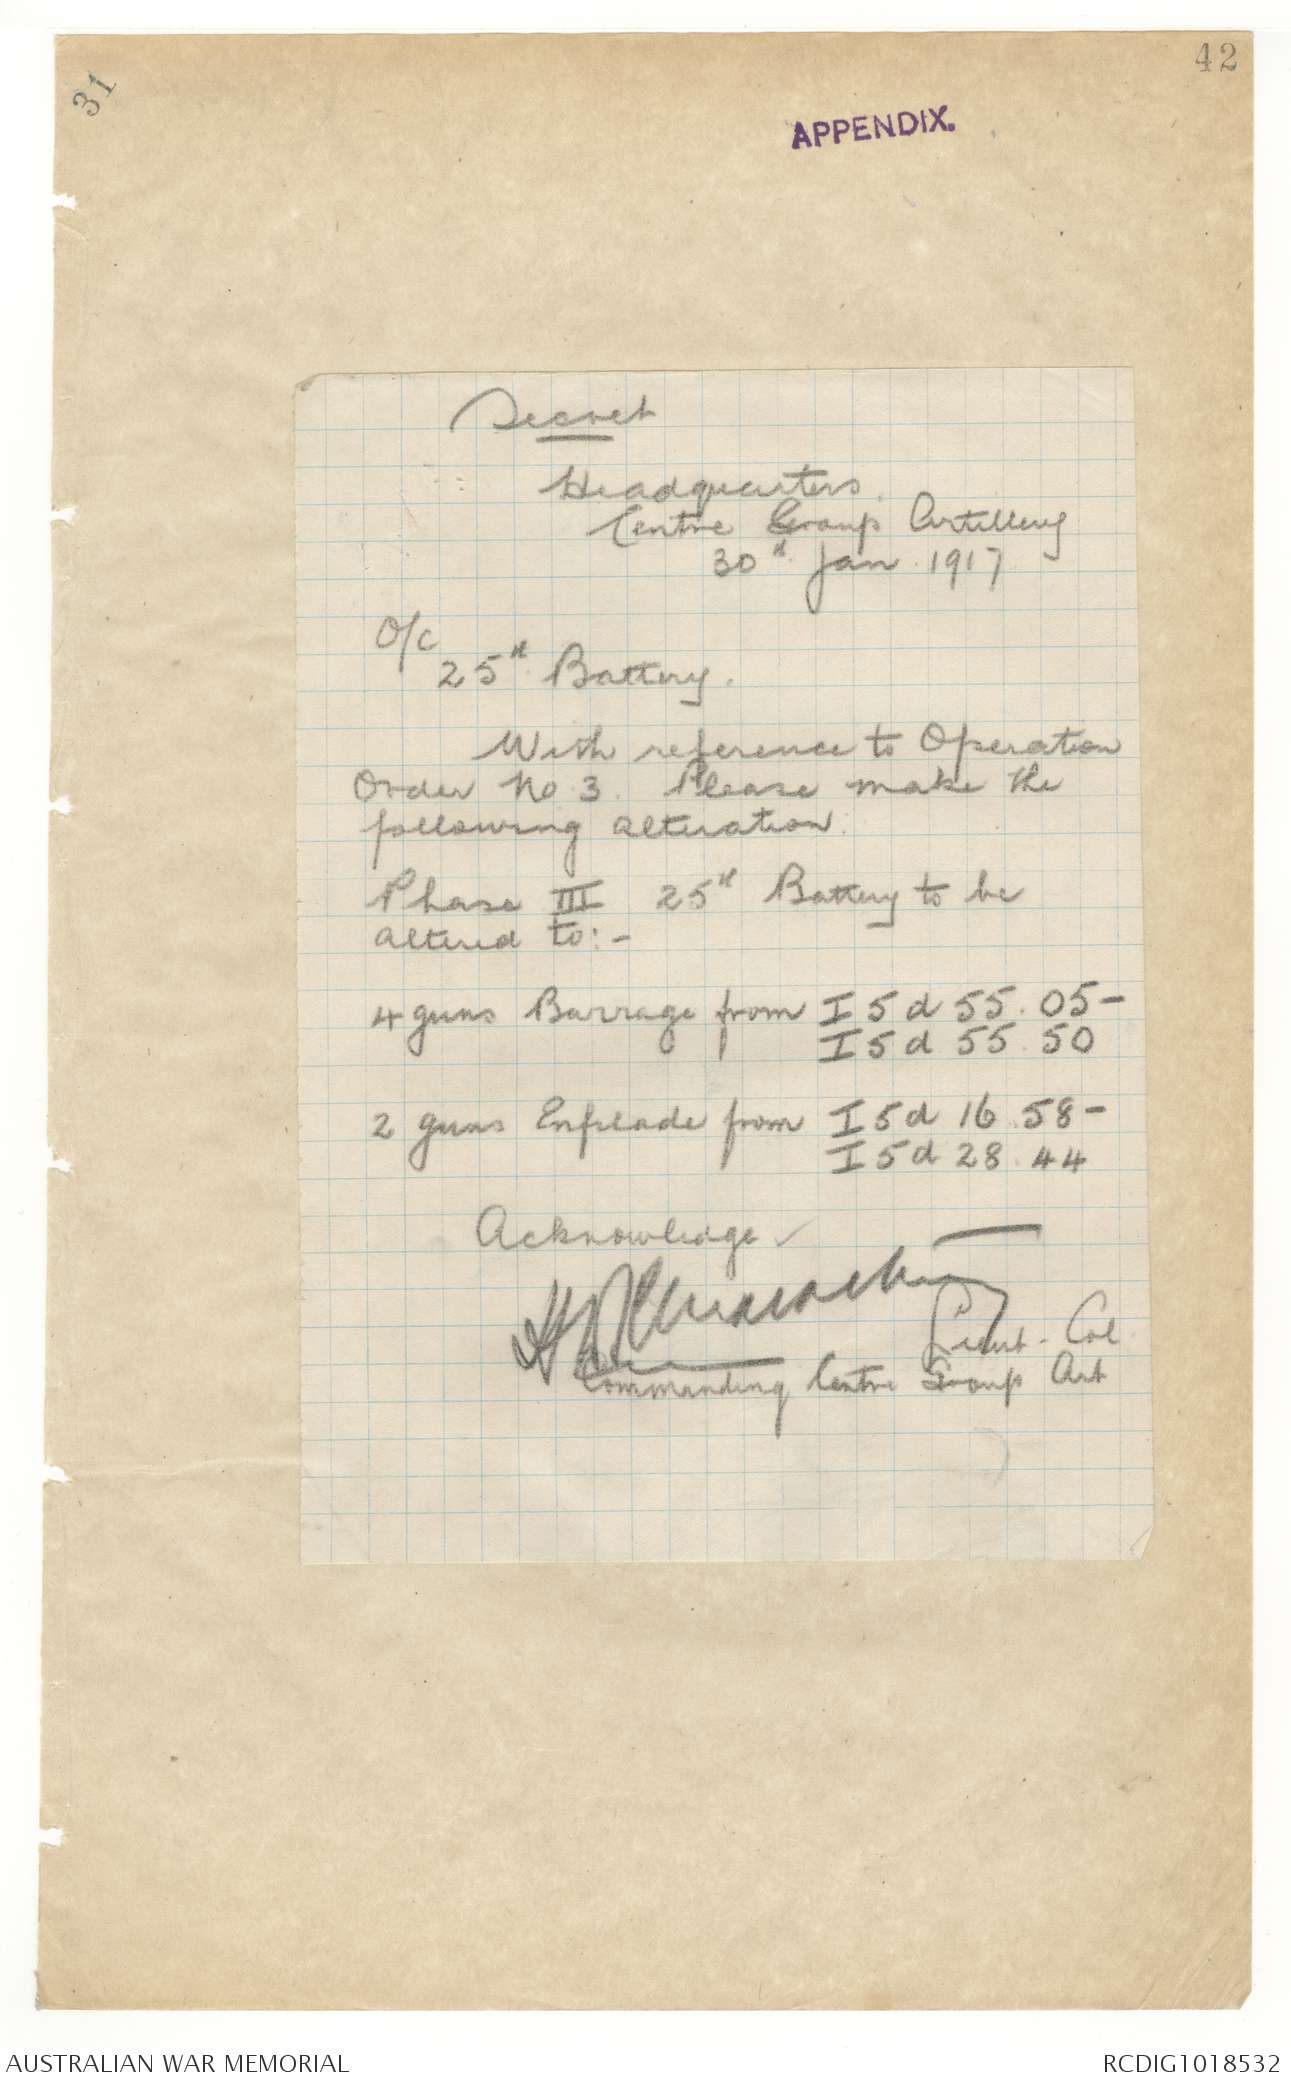 31
42
APPENDIX.
Secret
Headquarters.
Centre Group Artillery
30th Jan. 1917
O/C
25th Battery.
With reference to Operation
Order No. 3. Please make the
following alteration.
Phase III 25th Battery to be
altered to:-
4 guns Barrage from I 5 d 55.05-
I 5 d 55.50
2 guns Enfilade from I 5 d 16.58-
I 5 d 28.44
Acknowledge
Lieut-Col.
Commanding Centre Group Art
AUSTRALIAN WAR MEMORIAL
RCDIG1018532